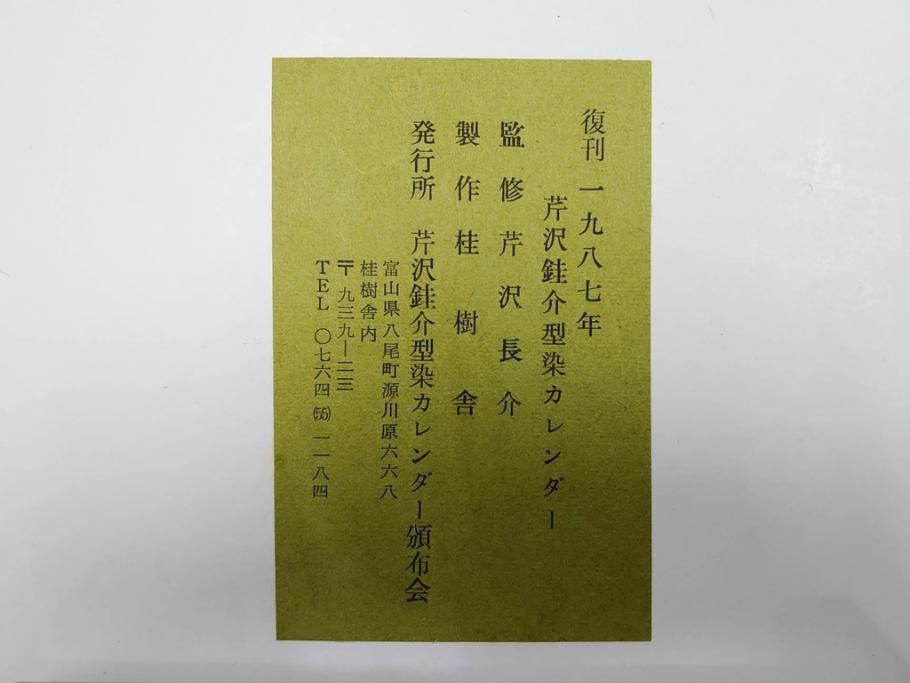 復刊 一九八七年
芹沢銈介型染カレンダー
監修 芹沢長介
製作 桂樹舎
発行所 芹沢銈介型染カレンダー頒布会
富山県八尾町源川原六六八
桂樹舎内
〒九三九―二三
TEL 〇七六四(55)一一八四